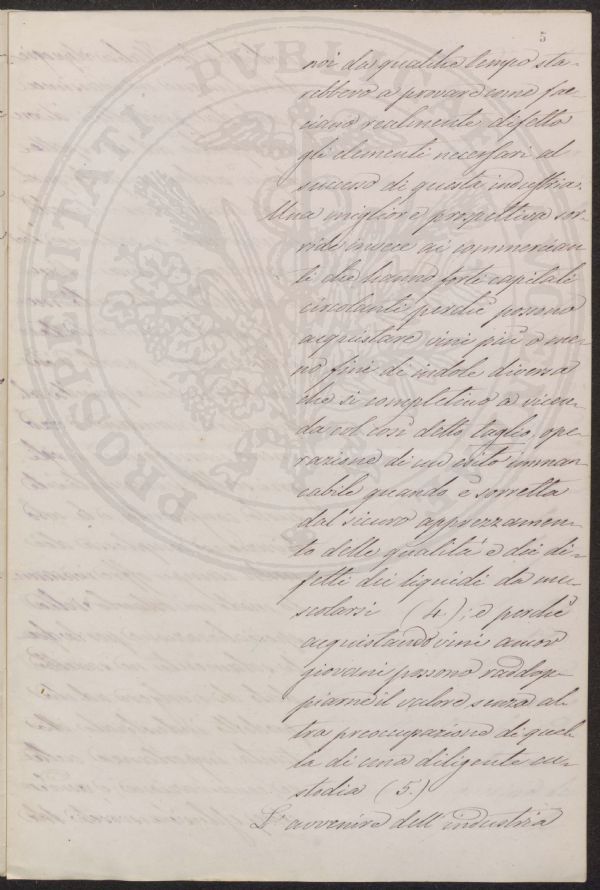 5
noi da qualche tempo sta-
rebbero a provare come fac-
ciano realmente difetto
gli elementi necessari al
successo di questa industria.
Una migliore prospettiva sor-
ride invece ai commercian-
ti che hanno forti capitali
circolanti perchè possono
acquistare vini più o me-
no fini di indole diversa
che si completino a vicen-
da col così detto taglio, ope-
razione di un esito imman-
cabile quando è sorretta
dal sicuro apprezzamen-
to delle qualità e dei di-
fetti dei liquidi da me-
scolarsi (4); e perchè
acquistando vini ancor
giovani possono raddop-
piarne il valore senza al-
tra preoccupazione di quel-
la di una diligente cu-
stodia (5.)
L'avvenire dell'industria
PROSPERITATI PUBLICAE AUGENDAE